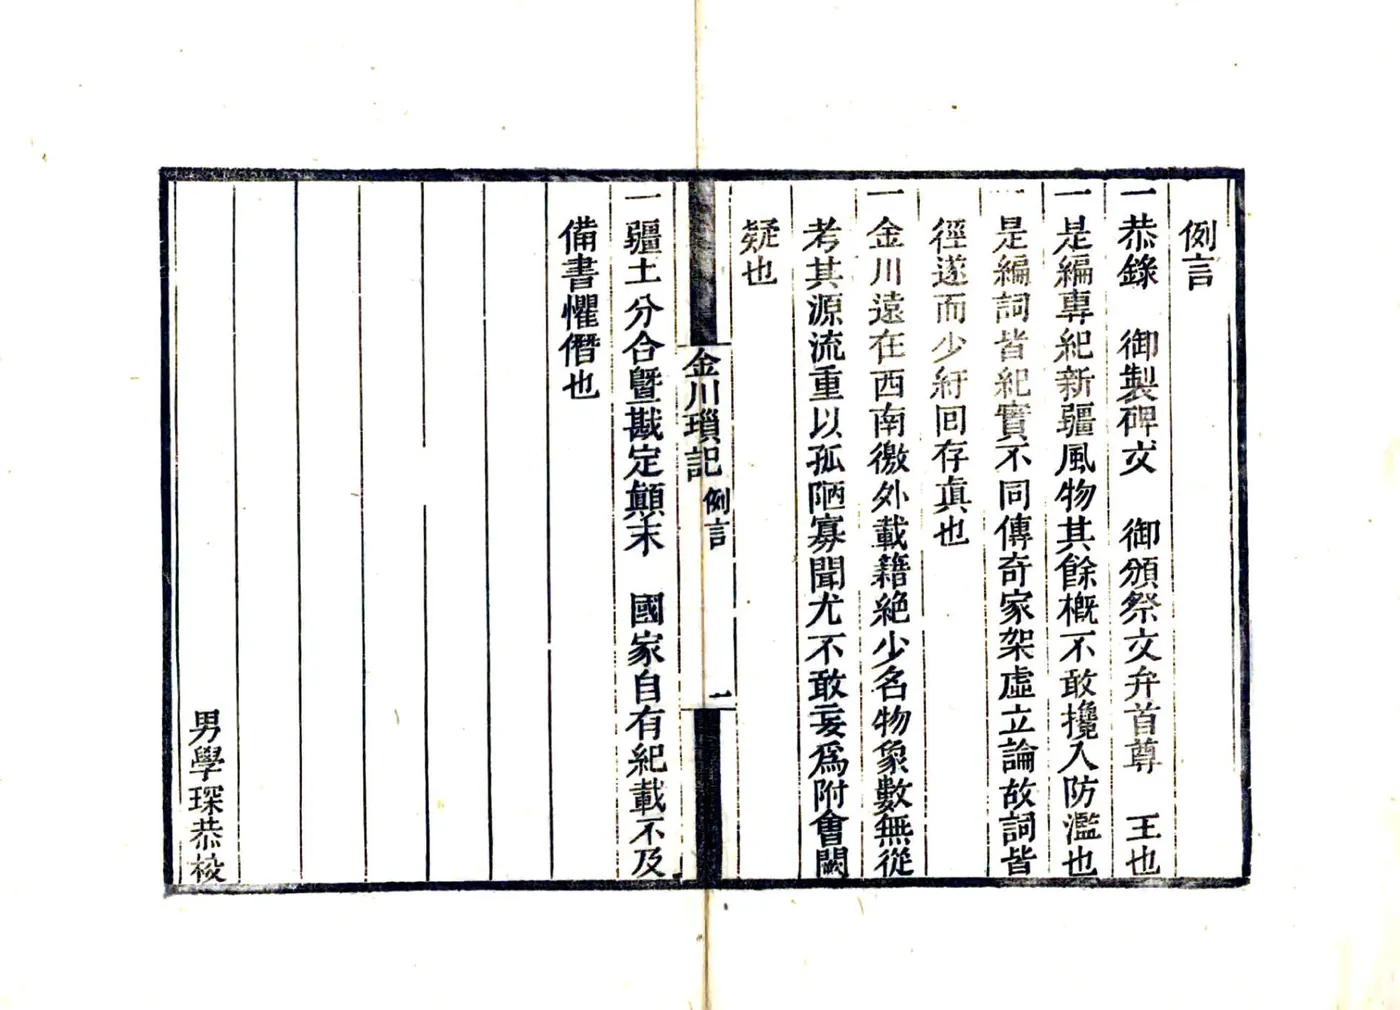 例言
一恭錄　御製碑文　御頒祭文弁首尊　王也
一是編專紀新疆風物其餘槪不敢攙入防濫也
一是編詞皆紀實不同傳奇家架虛立論故詞皆
徑遂而少紆回存眞也
一金川遠在西南徼外載籍絶少名物象數無從
考其源流重以孤陋寡聞尤不敢妄爲附會闕
疑也
金川瑣記
例言
一
一疆土分合曁戡定顛末　國家自有紀載不及
備書懼僭也
男學琛恭校